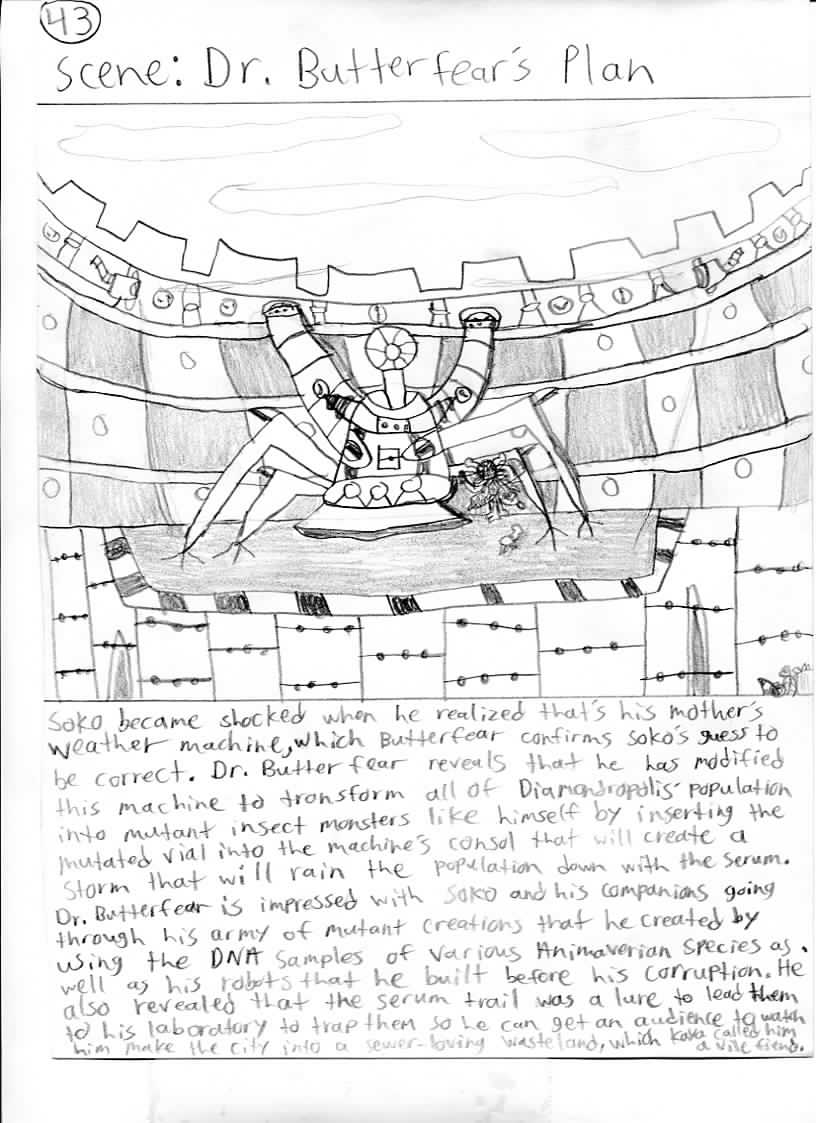 43
Scene: Dr. Butterfear's Plan
Soko became shocked when he realized that's his mother's
weather machine, which Butterfear confirms Soko's guess to
be correct. Dr. Butterfear reveals that he has modified
this machine to transform all of Diamondropolis' population
into mutant insect monsters like himself by inserting the
mutated vial into the machine's consol that will create a
storm that will rain the population down with the serum.
Dr. Butterfear is impressed with Soko and his companions going
through his army of mutant creations that he created by
using the DNA samples of various Animaverian species as.
well as his robots that he built before his corruption. He
also revealed that the serum trail was a lure to lead them
to his laboratory to trap them so he can get an audience to watch
him make the city into a sewer-loving wasteland, which Kava called him
a vile fiend.